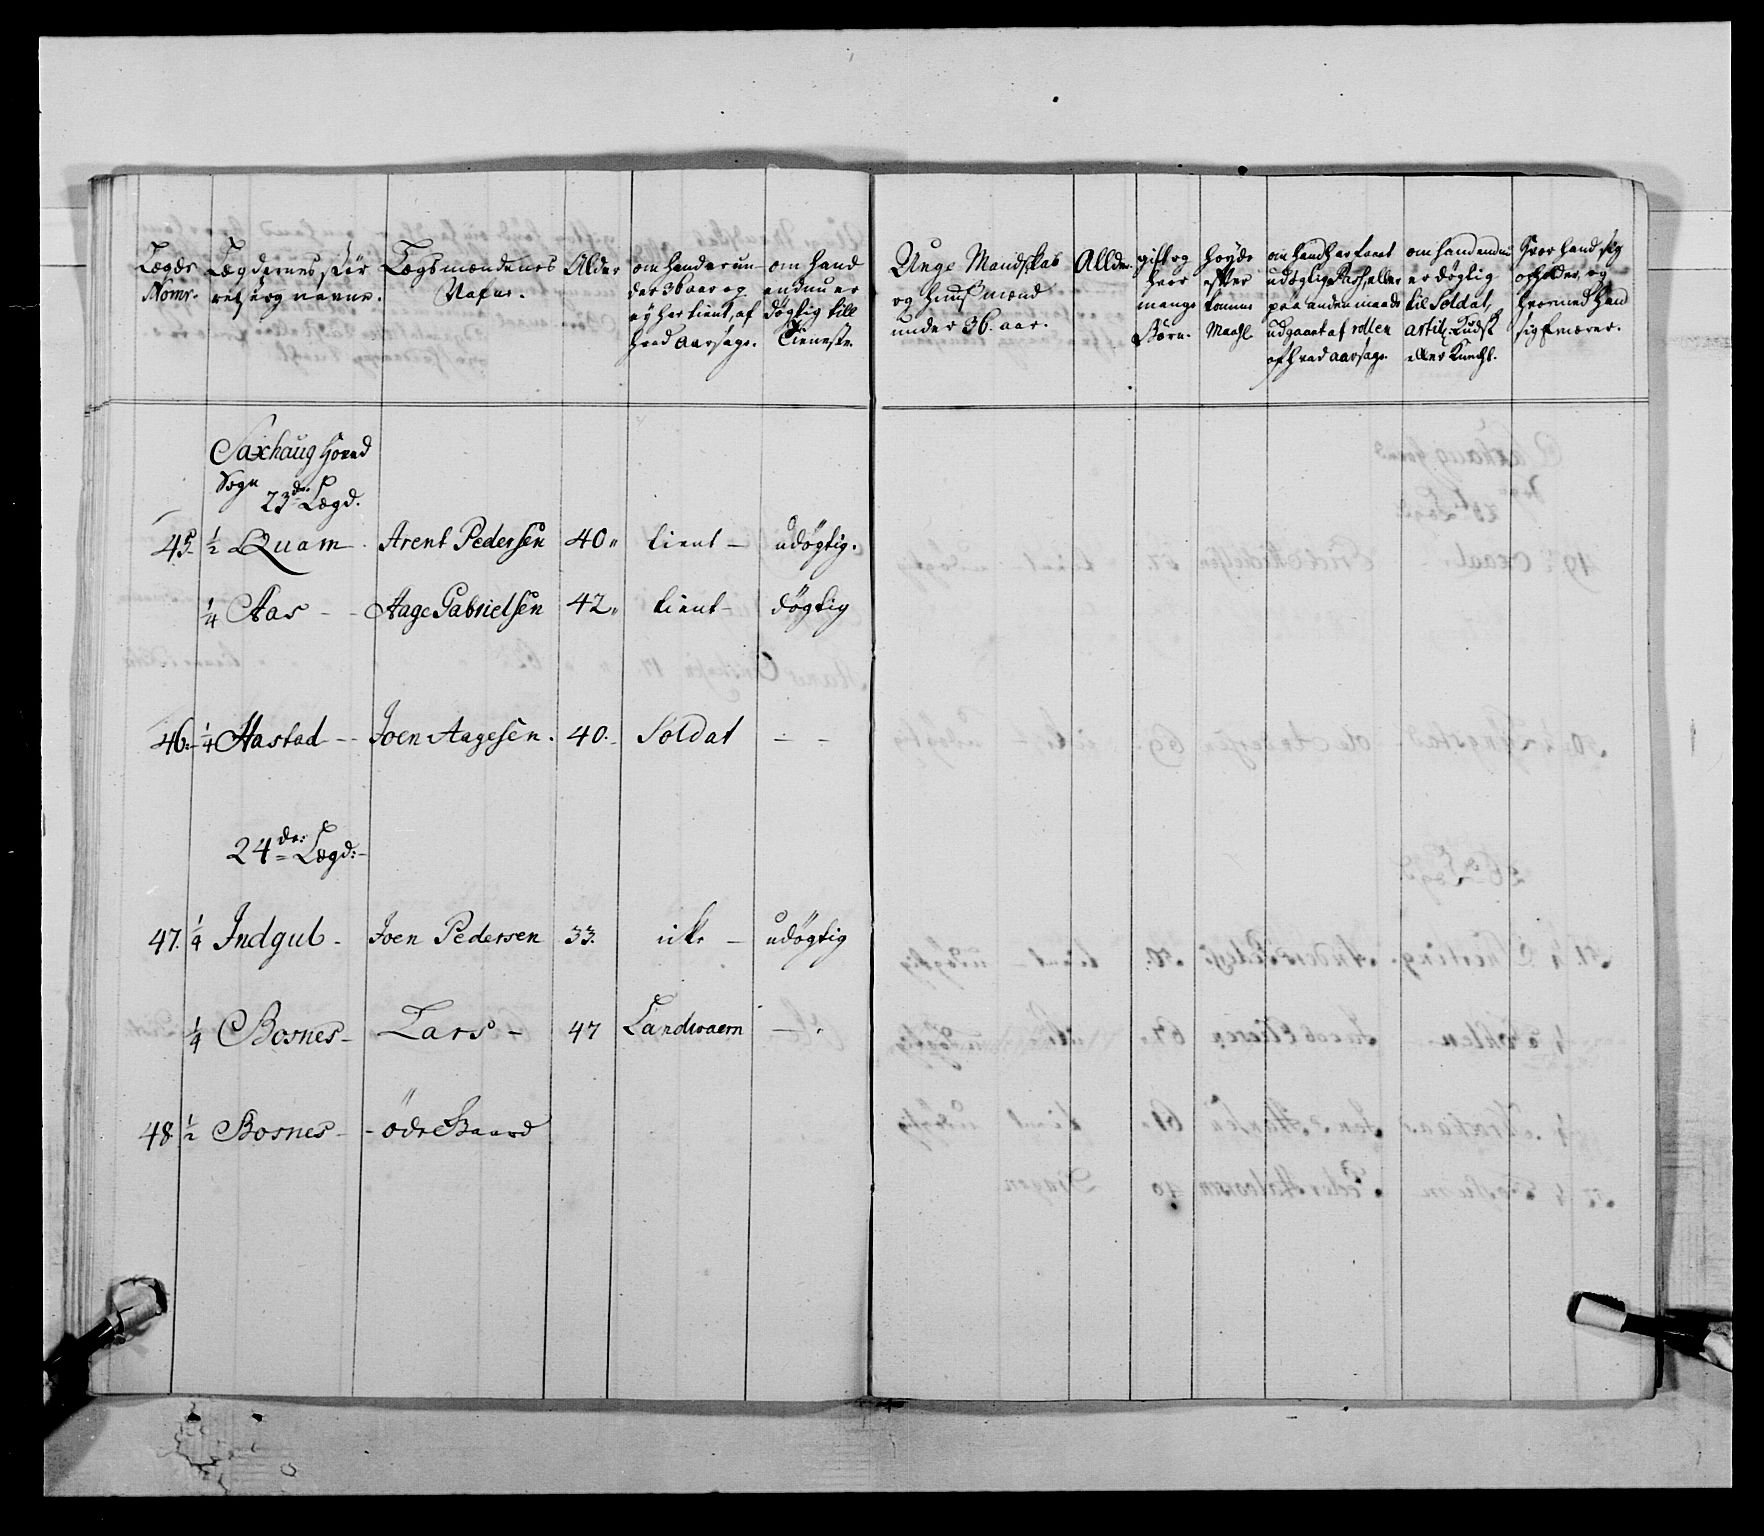 Lægds Nomr.
Lægdernes stör
relse og navne.
Lægsmændenes
Nafne.
Alder
om hand er un-
der 36 aar og
ej har tient, af
hvad aarsage.
om hand
endnu er
døgtig till
Tieneste
Unge Mandskab
og Huusmænd
under 36. aar.
Allder
gift og
hvor
mange
Børn.
Høyde
efter
Maahl.
om hand har faaet
udøgtigs Pass, eller
paa anden maade
udgaaet af rollen
af hvad aarsage.
om hand endnu
er døgtig
til Soldat,
artil: Kudsk
eller Knecht.
hvor hand sig
opholder, og
hvormed hand
sig Ernærer.
Saxhaug Hoved
Sogn
23de Lægd.
45. ½ Quam Arent Pedersen 40 tient udøgtig.
¼ Aas Aage Gabrielsen 42 tient døgtig
46. ¼ Hastad Joen Aagesen. 40. Soldat
24de Lægd:
47. ¼ Indgul Joen Pedersen 33. icke udøgtig
¼ Bosnes Lars 47 Landwaern
48 ½ Bosnes öde Gaard